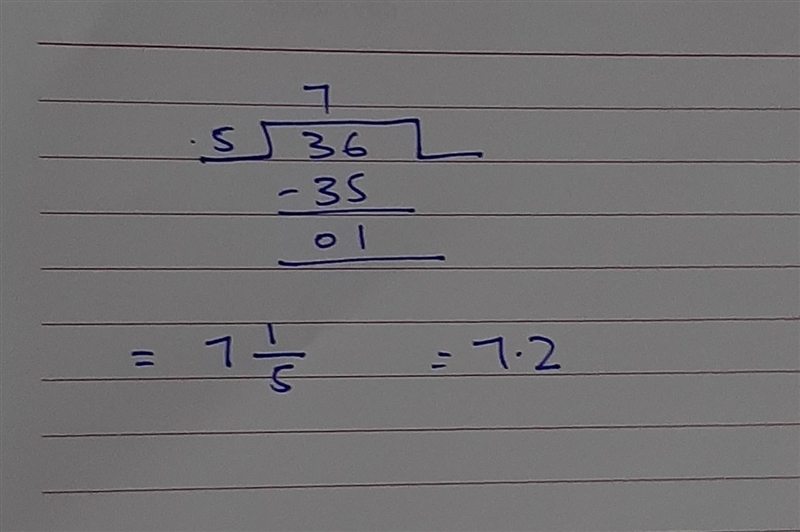 7
.5 ) 36
- 35
01
= 7 1/5 = 7.2